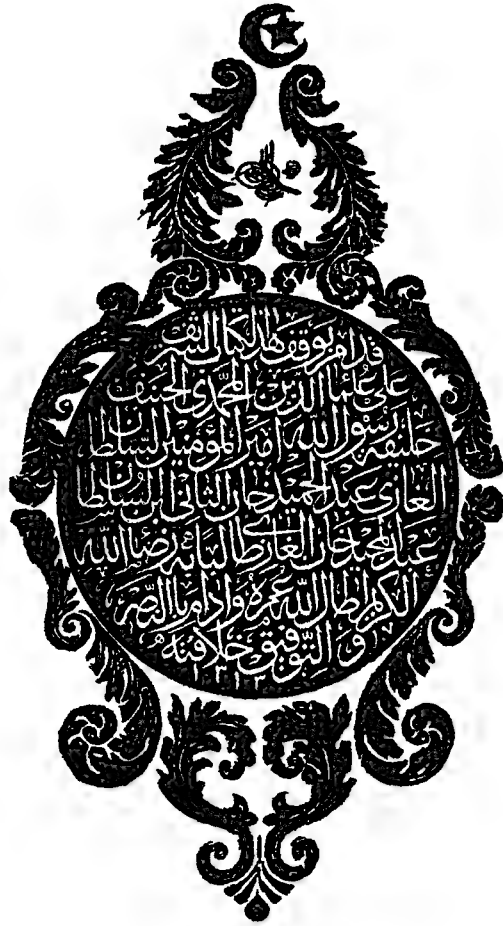 قد امر بوقف هذا الكتاب الشريف
على علماء الدين المحمدى الحنيف
خليفة رسول الله امير المؤمنين السلطان
الغازى عبد الحميد خان الثانى ابن السلطان
عبد المجيد خان الغازى طالبا به رضا الله
الكريم اطال الله عمره وادام بالنصر
و التوفيق خلافته